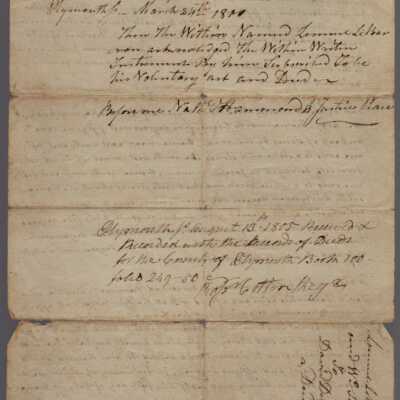 Plymouth Ss March 24th 1801
Then the Within Named Lemuel LeBar
ron acknowledged the Within Writin
Instrument By him Subscribed To be
his Voluntary act and Deed
Before me Nathl Hammond Justice Peace
Plymouth Ss August 13th 1805 Received &
Recorded with the Records of Deeds
for the County of Plymouth Book 100
folio 249-50
Cotton Regr
Lemuel
and Wm
To
David
a Deed